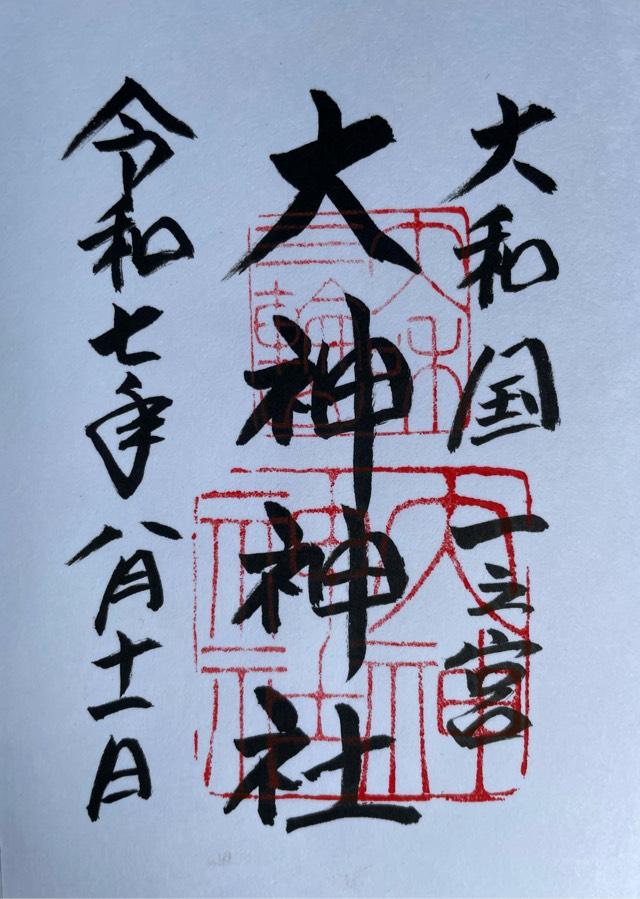 大和国一之宮
大神神社
令和七年八月十一日
大神神社